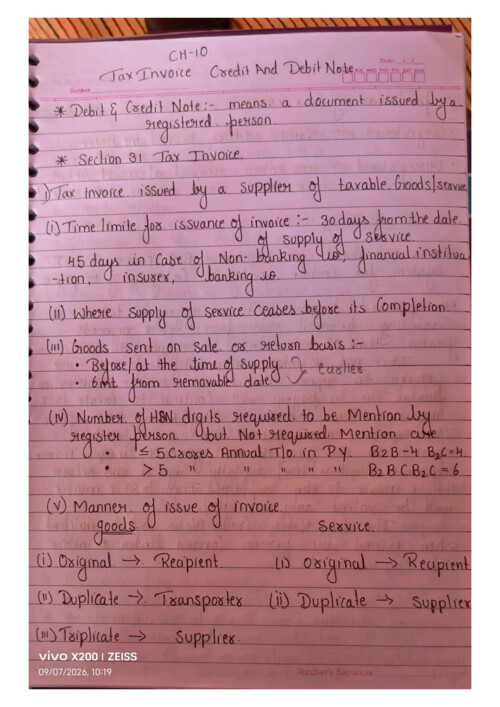 CH-10.
Date: / /
Tax Invoice Credit And Debit Note
SUN MON TUE WED THU FRI SAT
Subject
* Debit & Credit Note:- means a document issued by a
registered person.
* Section 31 Tax Invoice.
1) Tax invoice issued by a supplier of taxable Goods/service
(i) Time limite for issuance of invoice :- 30 days from the date
of supply of service.
45 days in Case of Non-banking co, finanual institua
-tion, insurer, banking co.
(II) Where supply of service ceases before its Completion.
(III) Goods sent on sale or return basis :-
• Before/at the time of supply } Earlier
• 6mt from removable date
(IV) Number of HSN digits required to be Mention by
register person but Not required Mention are
• ≤ 5 Crores Annual T/o in P.Y. B2B-4 B2C=4
• >5 " " " " " B2B C B2C=6
(V) Manner of issue of invoice.
goods Service.
(i) Original → Recipient (i) Original → Recipient
(ii) Duplicate → Transporter (ii) Duplicate → Supplier
(iii) Triplicate → Supplier.
vivo X200 | ZEISS
09/07/2026, 10:19
Teacher's Signature